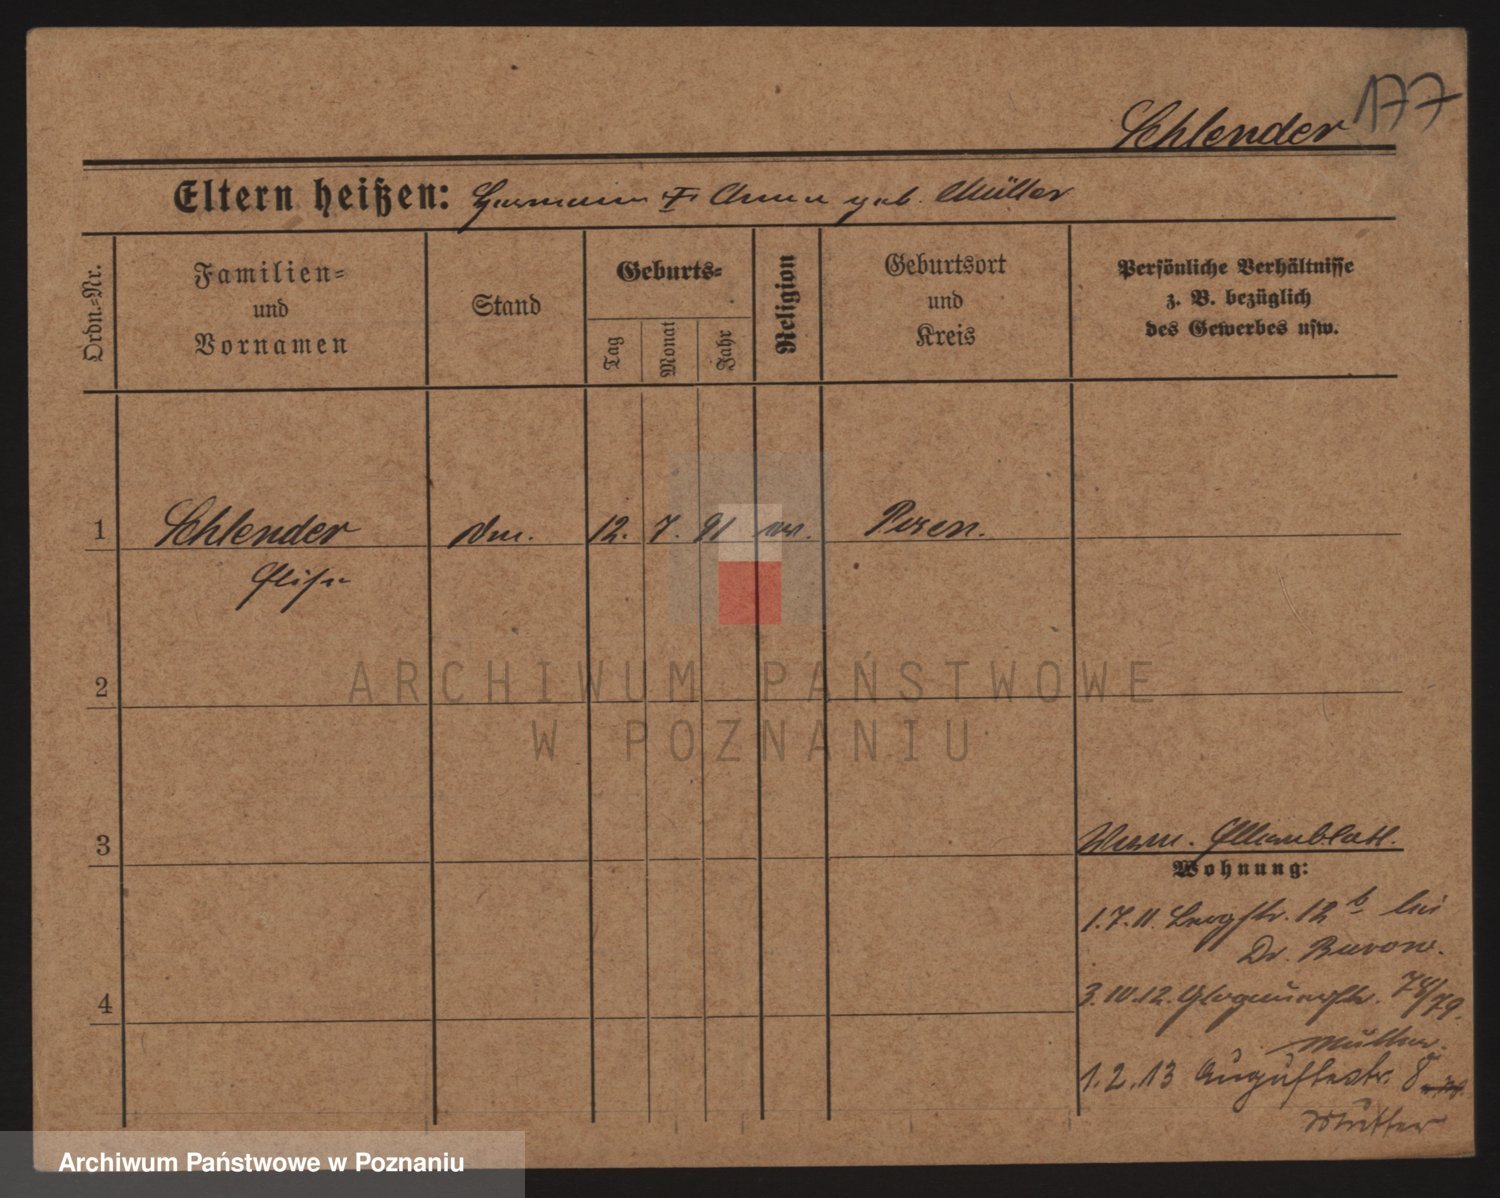 177
Schlender
Eltern heißen: Hermann u. Anna geb. Müller
Ordn.-Nr.
Familien- und Vornamen
Stand
Geburts-
Tag
Monat
Jahr
Religion
Geburtsort und Kreis
Persönliche Verhältnisse
z. B. bezüglich
des Gewerbes usw.
1 Schlender 12. 7. 91 ev. Posen.
Elise
2
ARCHIWUM PAŃSTWOWE
W POZNANIU
3
Wohnung:
1.7.11. Bergstr. 12 b bei
Dr. Buron.
4
3.10.12. Glogauerstr. 78/79.
Mutter.
1.2.13 Augustestr. 8
Mutter
Archiwum Państwowe w Poznaniu